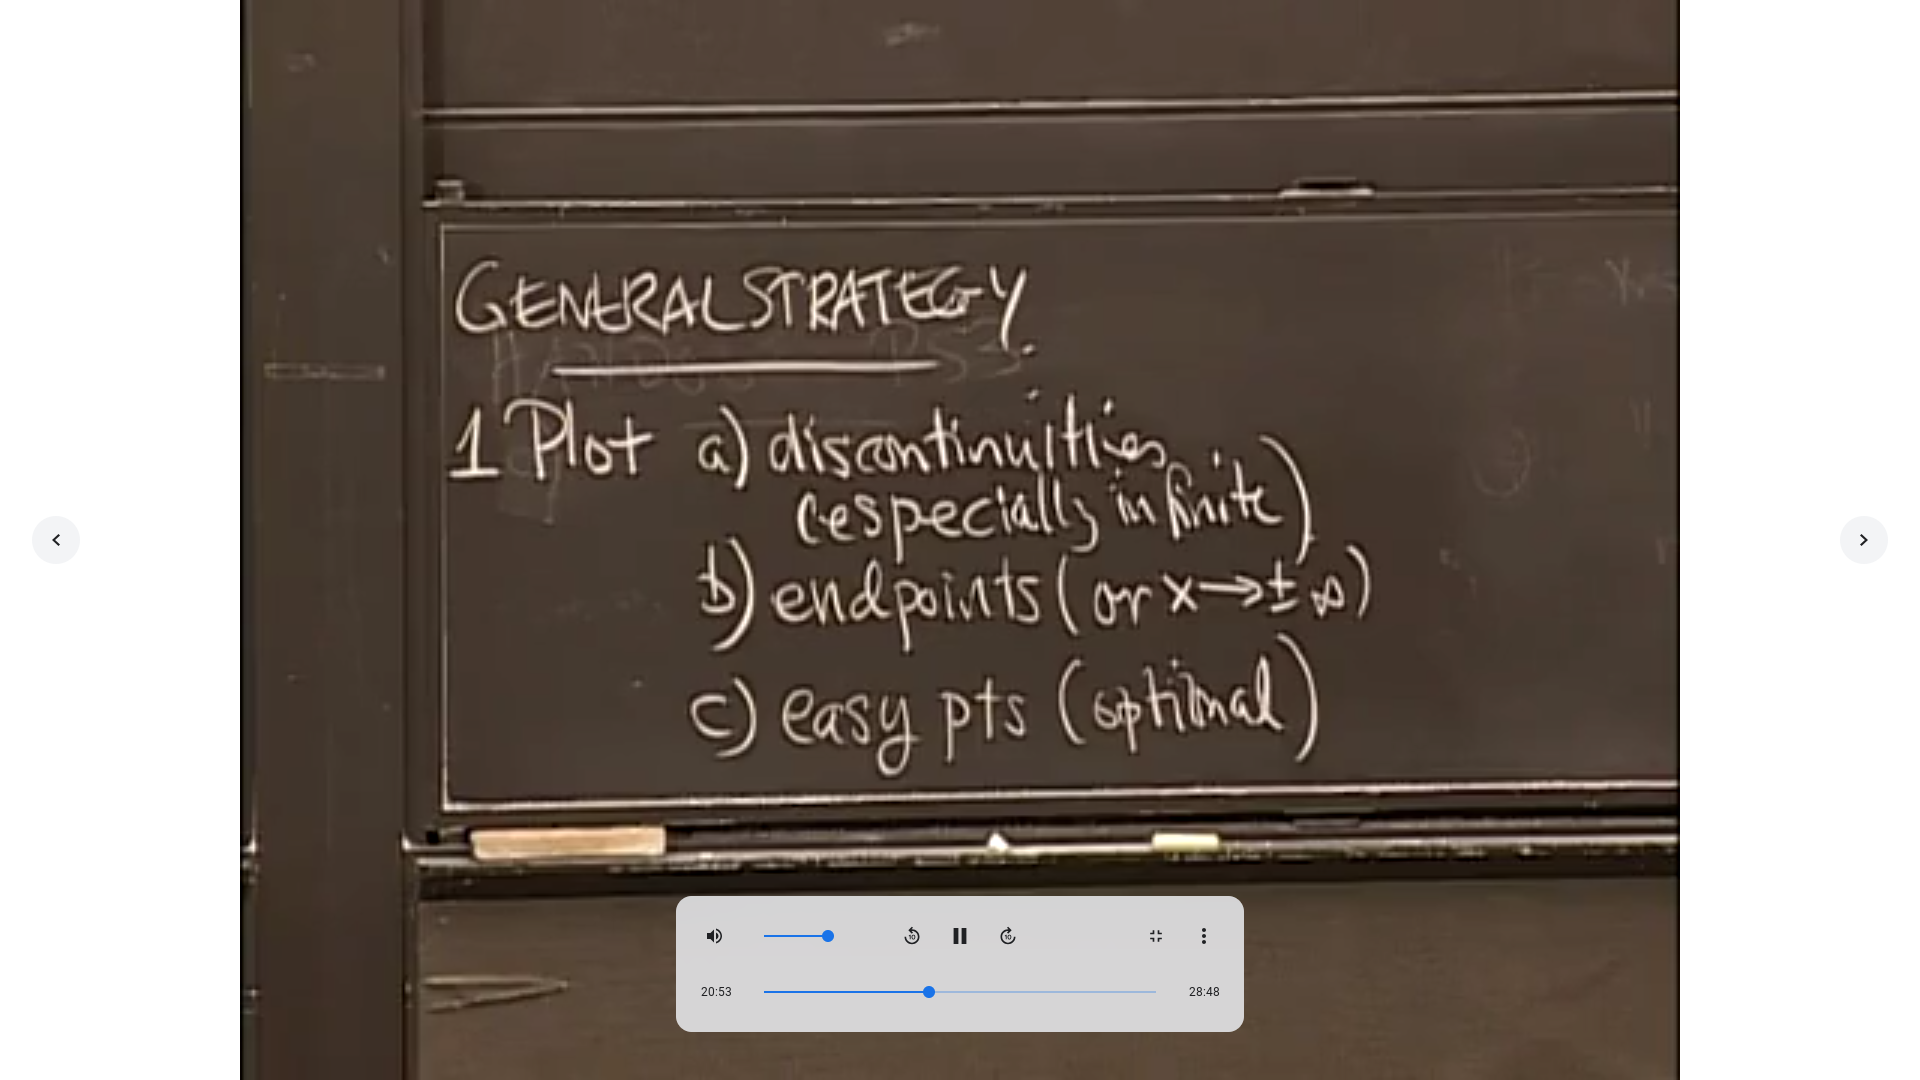 GENERAL STRATEGY.
1 Plot a) discontinuities
(especially infinite)
b) endpoints (or x→± ∞)
c) easy pts (optional)
10
10
20:53
28:48